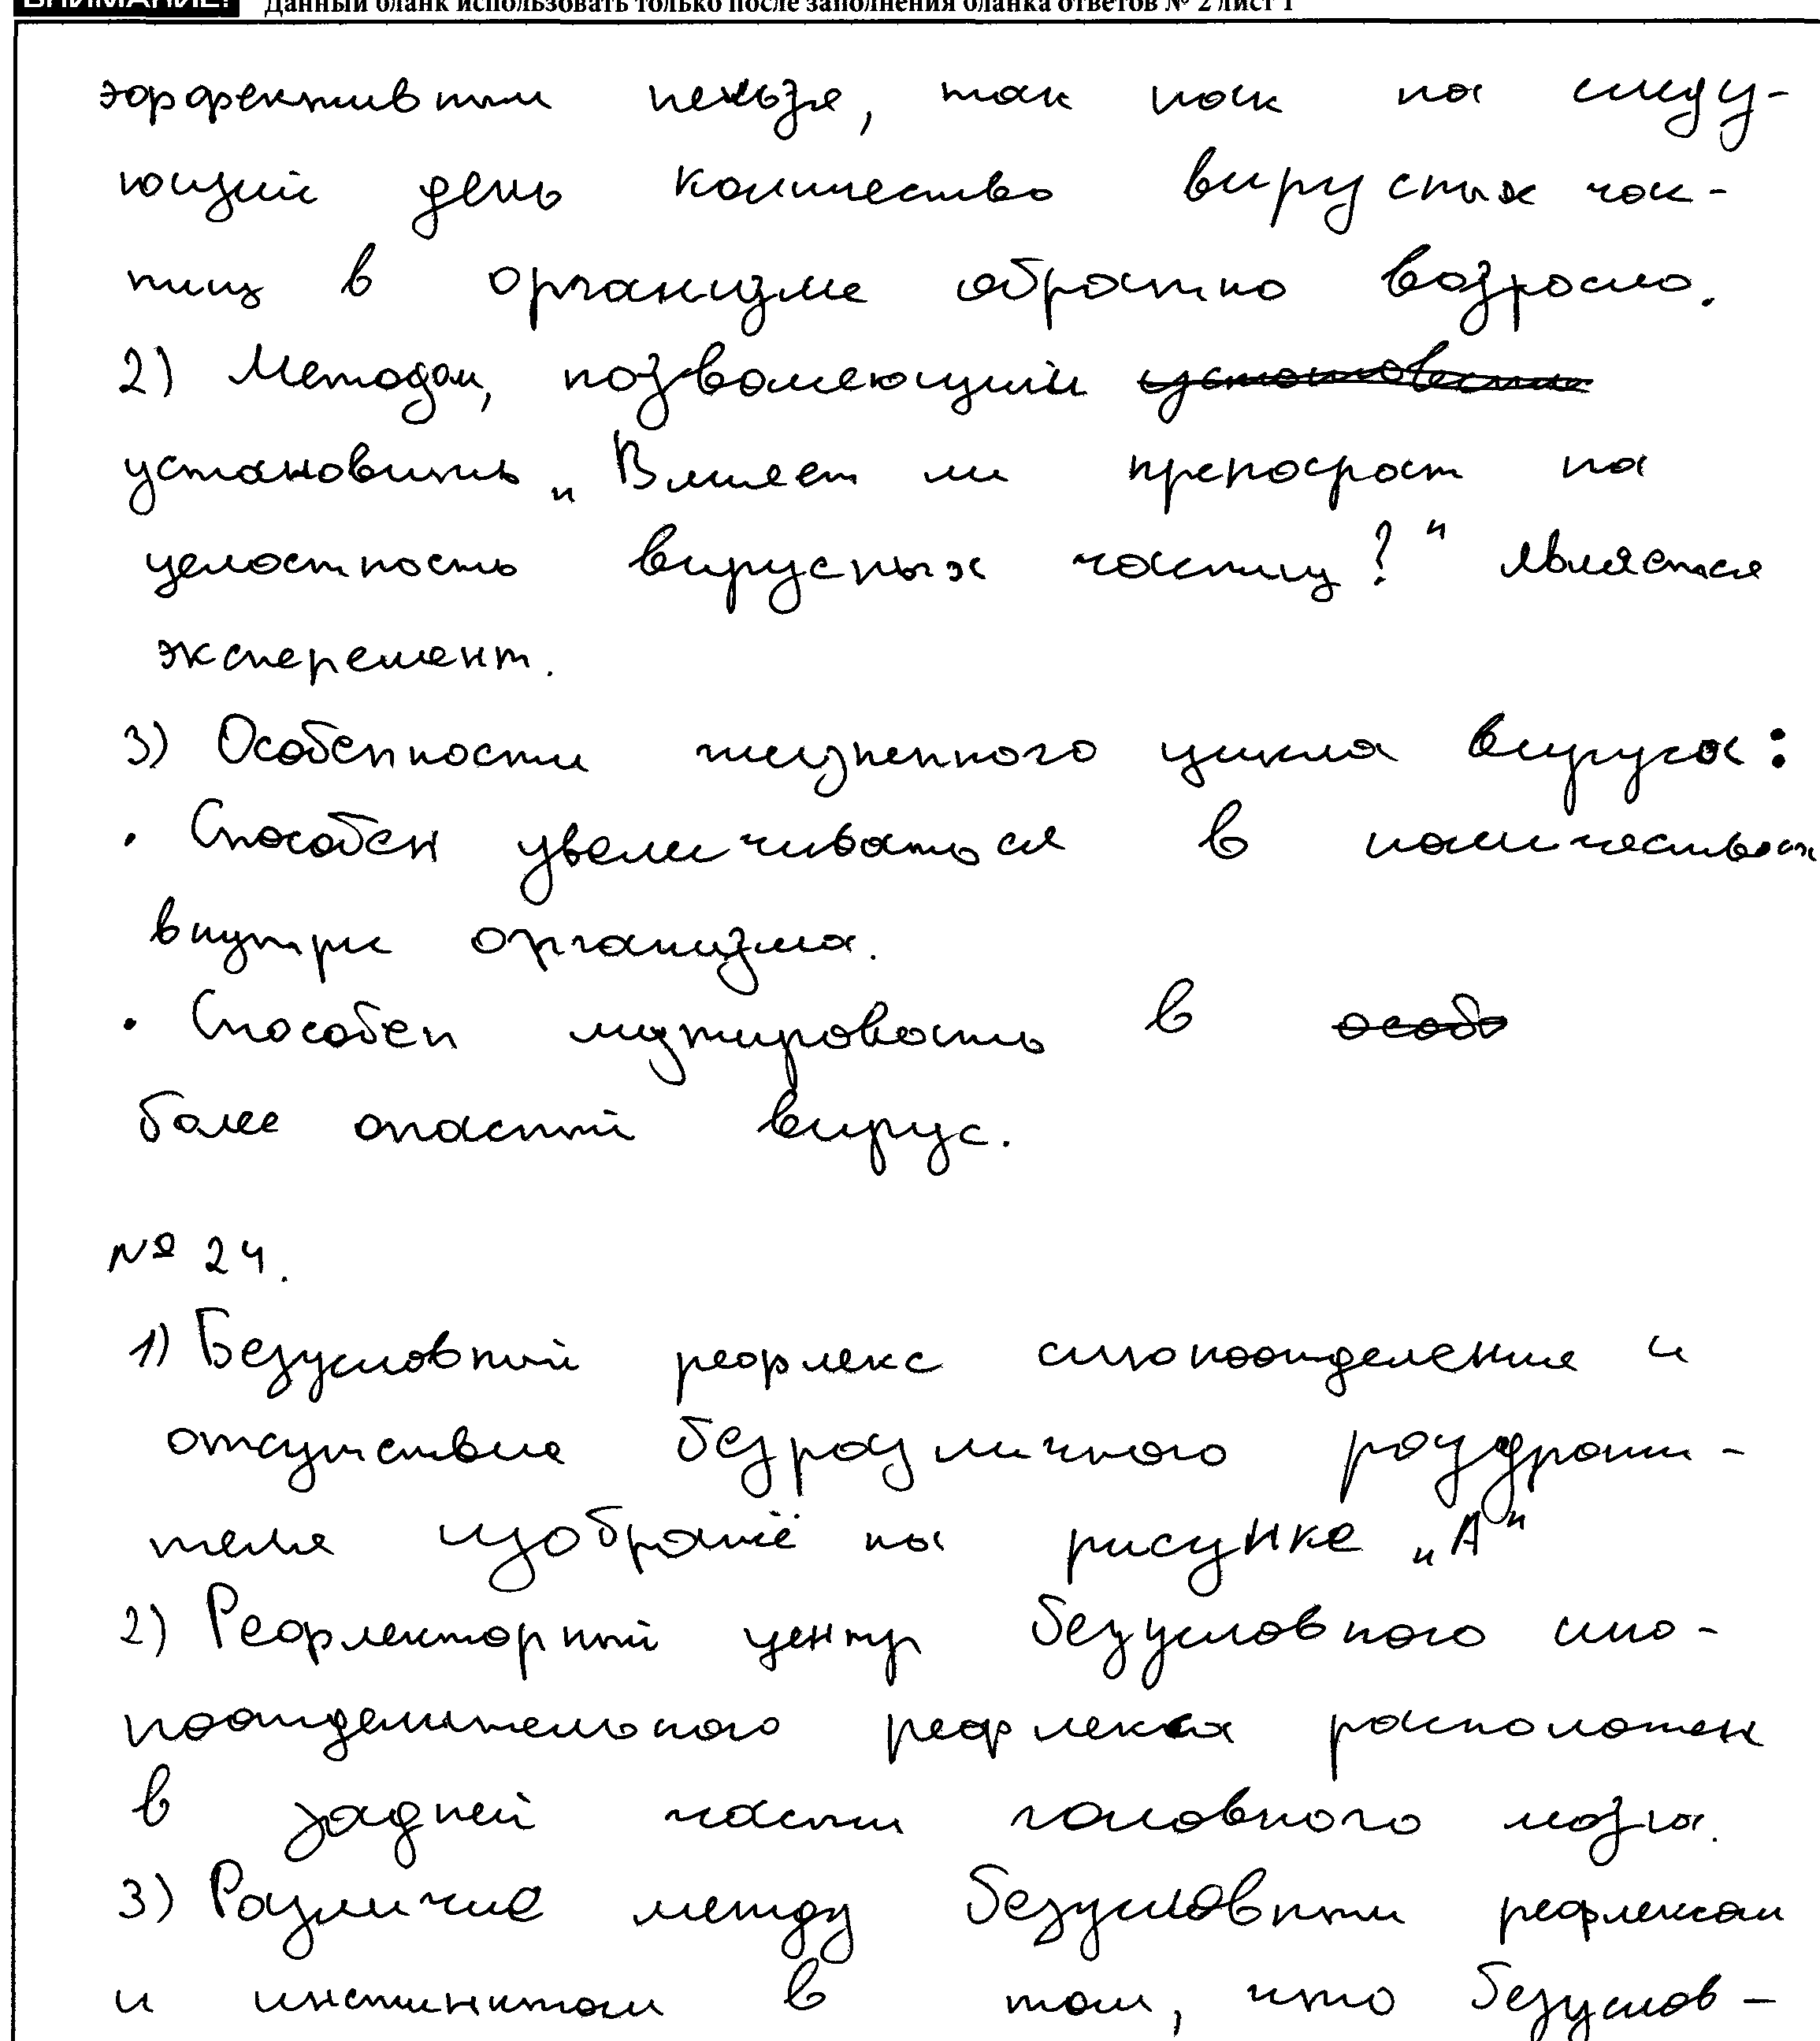 ВНИМАНИЕ! Данный бланк использовать только после заполнения бланка ответов № 2 лист 1
эффективным нельзя, так как на следу-
ющий день количество вирусных час-
тиц в организме обратно возросло.
2) Методом, позволяющий установить
установить „Влияет ли препарат на
целостность вирусных частиц?" является
эксперемент.
3) Особенности жизненного цикла вируса:
• Способен увеличиваться в количествах
внутри организма.
• Способен мутировать в особо
более опасный вирус.
№ 24.
1) Безусловный рефлекс слюноотделения и
отсутствие безразличного раздражи-
теля изображё на рисунке „А"
2) Рефлекторный центр безусловного слю-
ноотделительного рефлекса расположен
в задней части головного мозга.
3) Различие между безусловным рефлексом
и инстинктом в том, что безуслов-